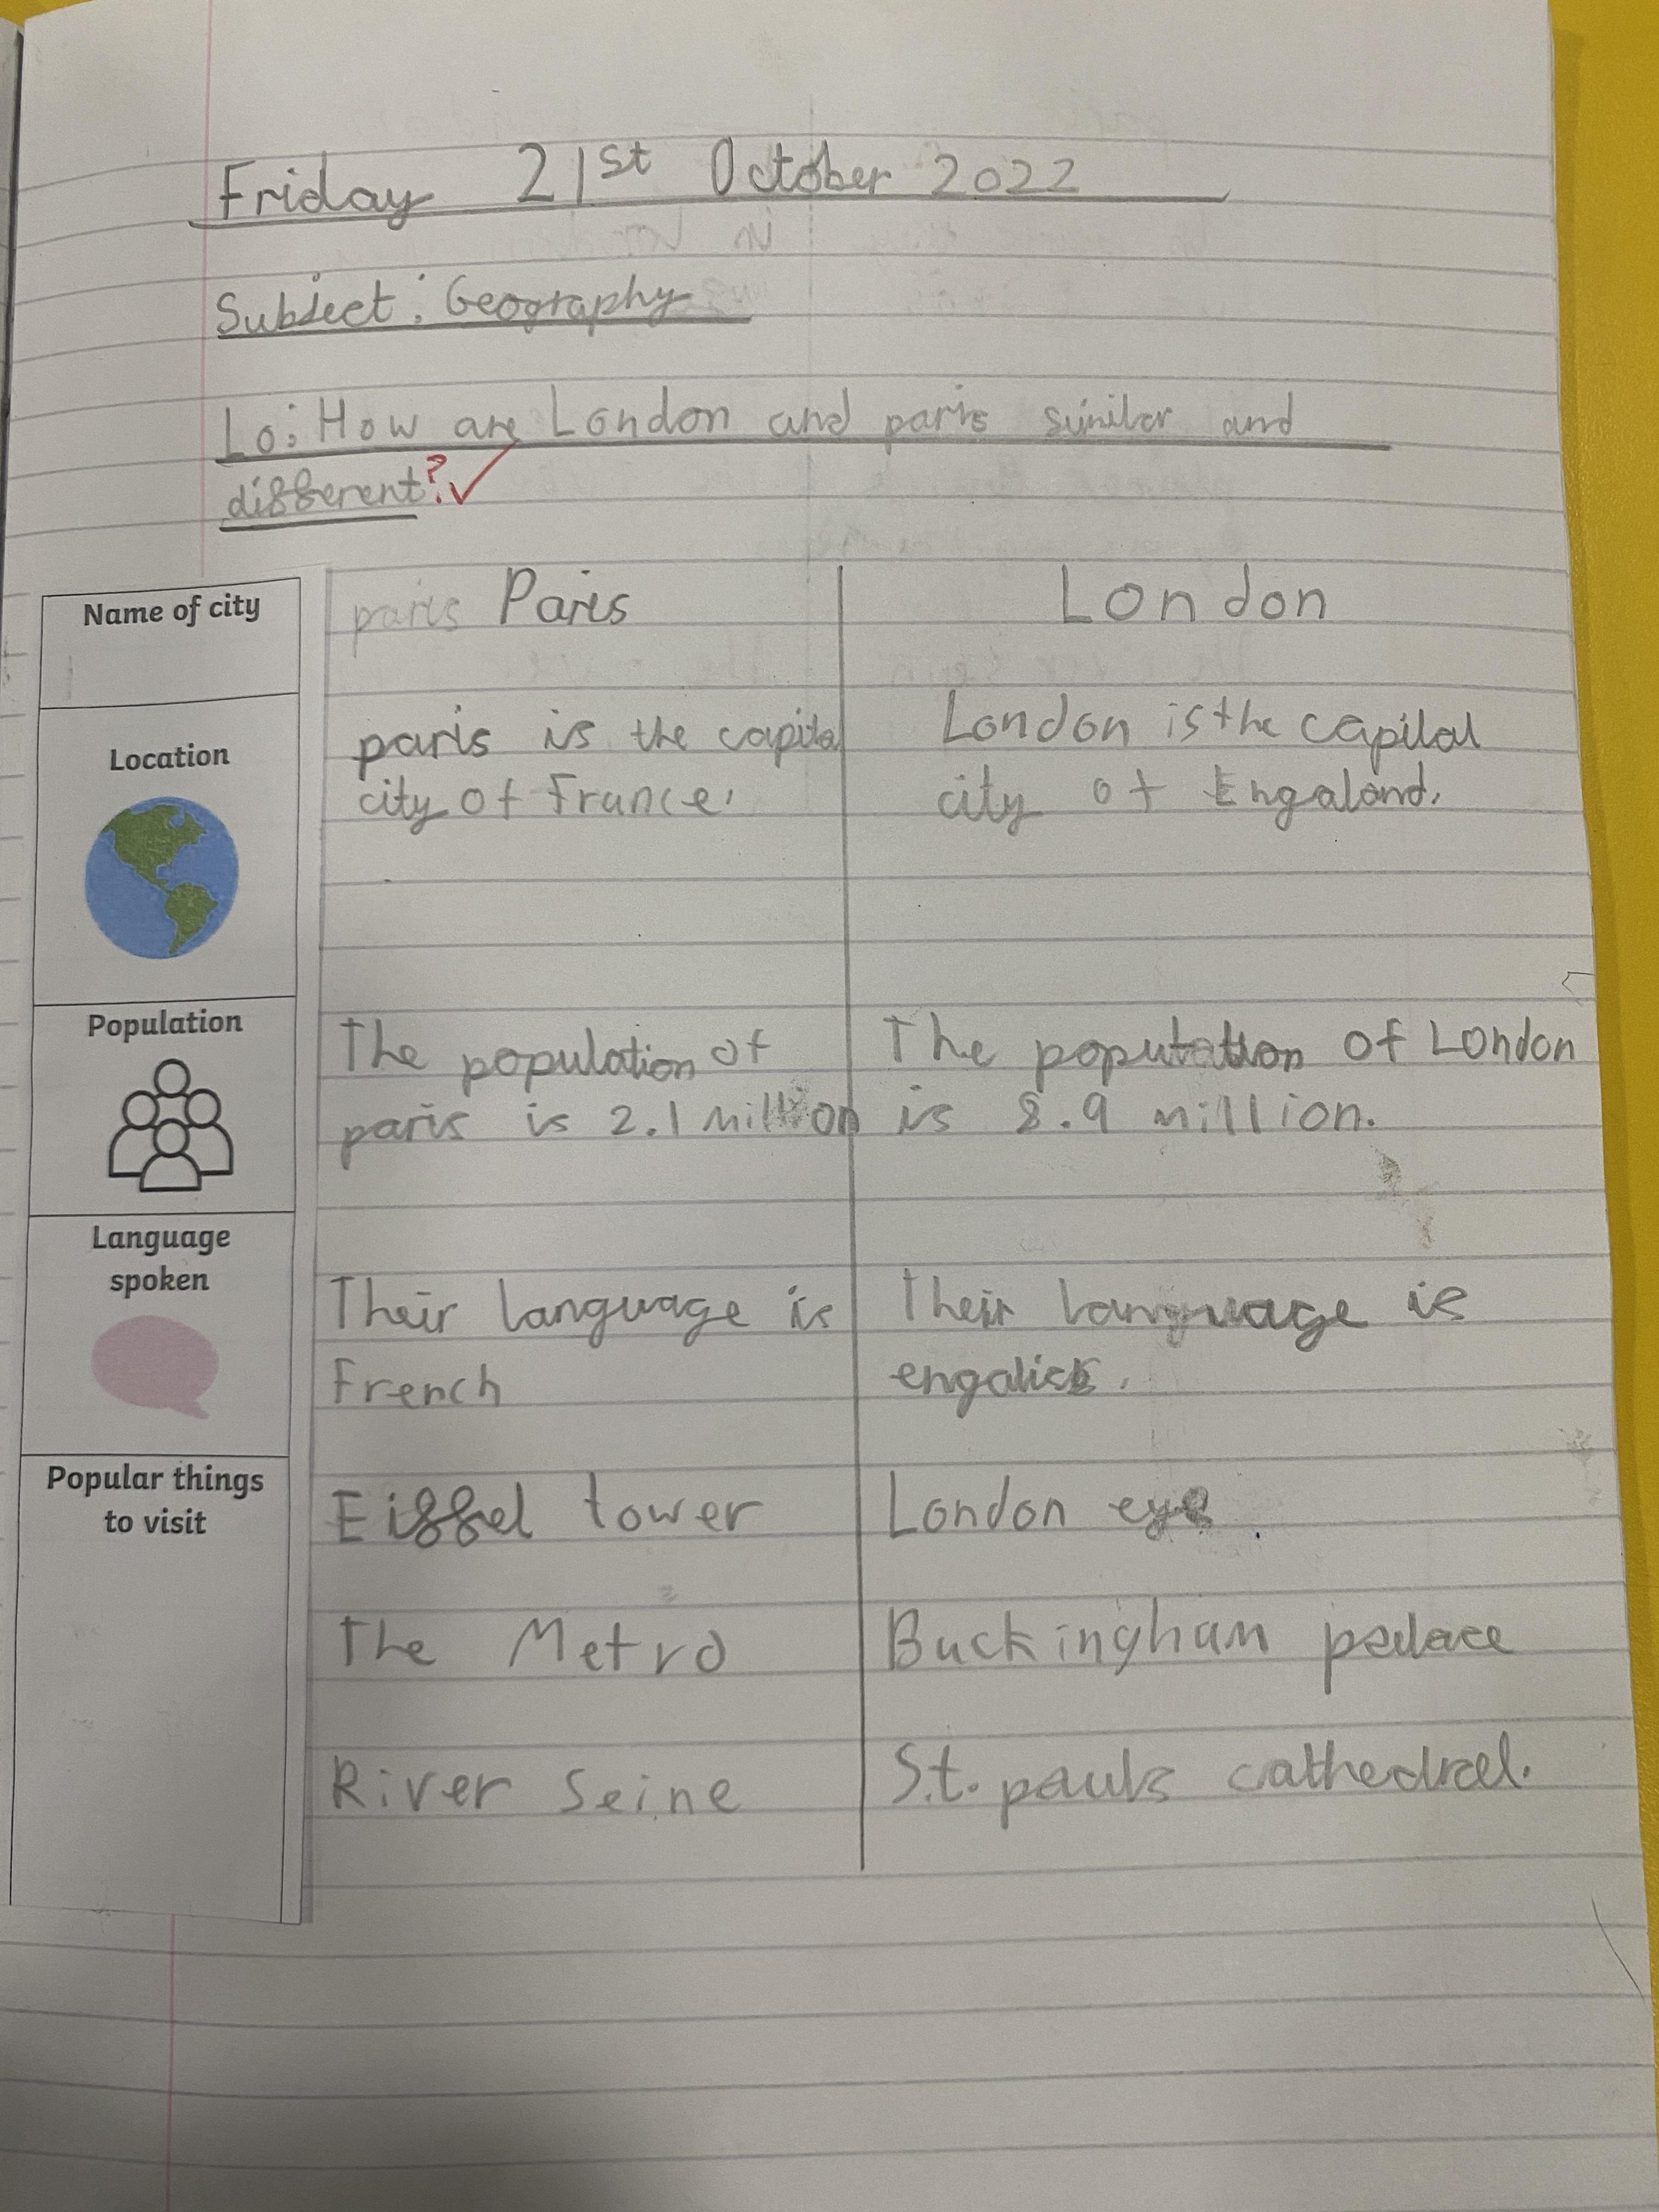 Friday 21st October 2022
Subject: Geography
Lo: How are London and paris similar and
different?
Name of city
paris Paris
London
Location
paris is the capital
city of France.
London is the capital
city of Engaland.
Population
The population of
paris is 2.1 Million
The population of London
is 8.9 million.
Language
spoken
Their language is
French
Their language is
Popular things
to visit
Eiffel tower
London eye
The Metro
Buckingham palace
River Seine
S.t. pauls cathedral.